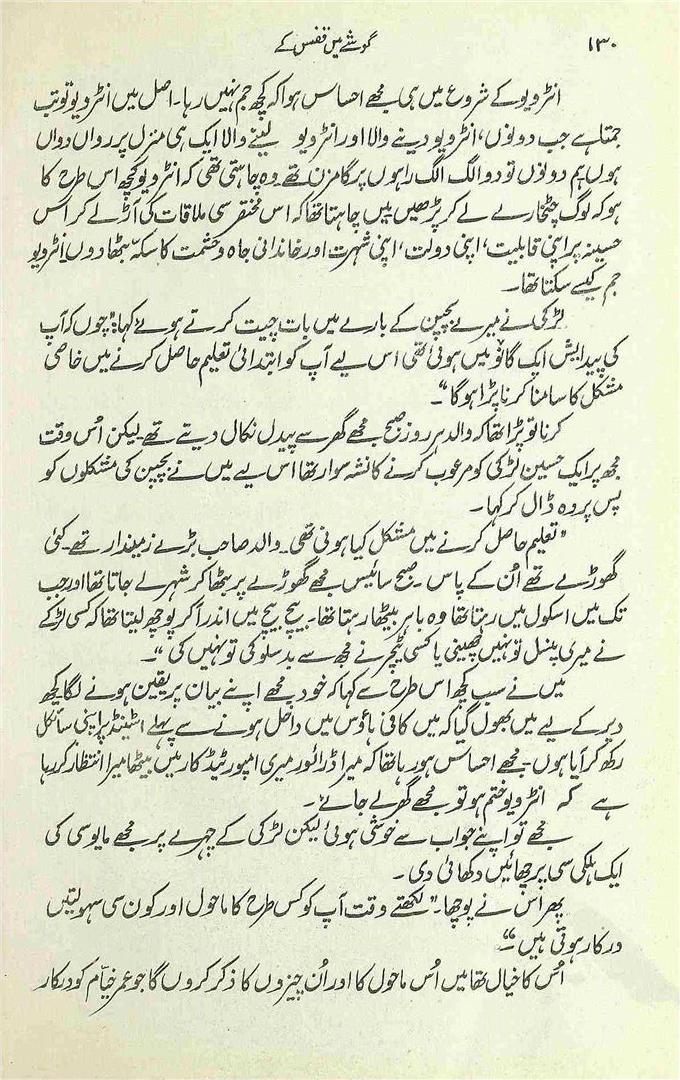 ۱۳۰ گوشے میں قفس کے
انٹرویو کے شروع میں ہی مجھے احساس ہوا کہ کچھ جم نہیں رہا۔ اصل میں انٹرویو تو تب
جمتا ہے جب دونوں، انٹرویو دینے والا اور انٹرویو لینے والا ایک ہی منزل پر رواں دواں
ہوں ہم دونوں تو دو الگ الگ راہوں پر گامزن تھے۔ وہ چاہتی تھی کہ انٹرویو کچھ اس طرح کا
ہو کہ لوگ چٹخارے لے لے کر پڑھیں میں چاہتا تھا کہ اس مختصر سی ملاقات کی آڑ لے کر اس
حسینہ پر اپنی قابلیت، اپنی دولت، اپنی شہرت اور خاندانی جاہ و حشمت کا سکہ بٹھا دوں۔ انٹرویو
جم کیسے سکتا تھا۔
لڑکی نے میرے بچپن کے بارے میں بات چیت کرتے ہوئے کہا: "چوں کہ آپ
کی پیدایش ایک گانؤ میں ہوئی تھی اس لیے آپ کو ابتدائی تعلیم حاصل کرنے میں خاصی
مشکل کا سامنا کرنا پڑا ہوگا"۔
کرنا تو پڑا تھا کہ والد ہر روز صبح مجھے گھر سے پیدل نکال دیتے تھے۔ لیکن اُس وقت
مجھ پر ایک حسین لڑکی کو مرعوب کرنے کا نشہ سوار تھا اس لیے میں نے بچپن کی مشکلوں کو
پس پردہ ڈال کر کہا۔
"تعلیم حاصل کرنے میں مشکل کیا ہونی تھی۔ والد صاحب بڑے زمیندار تھے۔ کئی
گھوڑے تھے اُن کے پاس۔ صبح سائیس مجھے گھوڑے پر بٹھا کر شہر لے جاتا تھا اور جب
تک میں اسکول میں رہتا تھا وہ باہر بیٹھا رہتا تھا۔ بیچ بیچ میں اندر آکر پوچھ لیتا تھا کہ کسی لڑکے
نے میری پنسل تو نہیں چھینی یا کسی ٹیچر نے مجھ سے بدسلوکی تو نہیں کی"۔
میں نے سب کچھ اس طرح سے کہا کہ خود مجھے اپنے بیان پر یقین ہونے لگا۔ کچھ
دیر کے لیے میں بھول گیا کہ میں کافی ہاؤس میں داخل ہونے سے پہلے اسٹینڈ پر اپنی سائکل
رکھ کر آیا ہوں۔ مجھے احساس ہو رہا تھا کہ میرا ڈرائور میری امپورٹیڈ کار میں بیٹھا میرا انتظار کر رہا
ہے کہ انٹرویو ختم ہو تو مجھے گھر لے جائے۔
مجھے تو اپنے جواب سے خوشی ہوئی لیکن لڑکی کے چہرے پر مجھے مایوسی کی
ایک ہلکی سی پرچھائیں دکھائی دی۔
پھر اُس نے پوچھا۔ "لکھتے وقت آپ کو کس طرح کا ماحول اور کون سی سہولتیں
درکار ہوتی ہیں"۔
اُس کا خیال تھا میں اُس ماحول کا اور اُن چیزوں کا ذکر کروں گا جو عمر خیام کو درکار